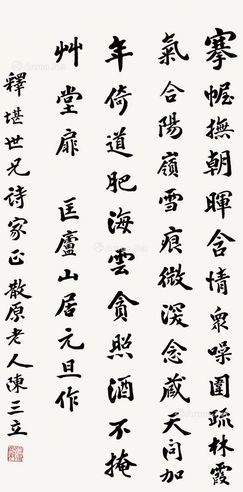 搴幄撫朝暉含情眾噪圍疏林霞
氣合陽嶺雪痕微深念藏天問加
年倚道肥海雲貪照酒不掩
艸堂扉 匡廬山居元旦作
釋堪世兄詩家正 散原老人陳三立